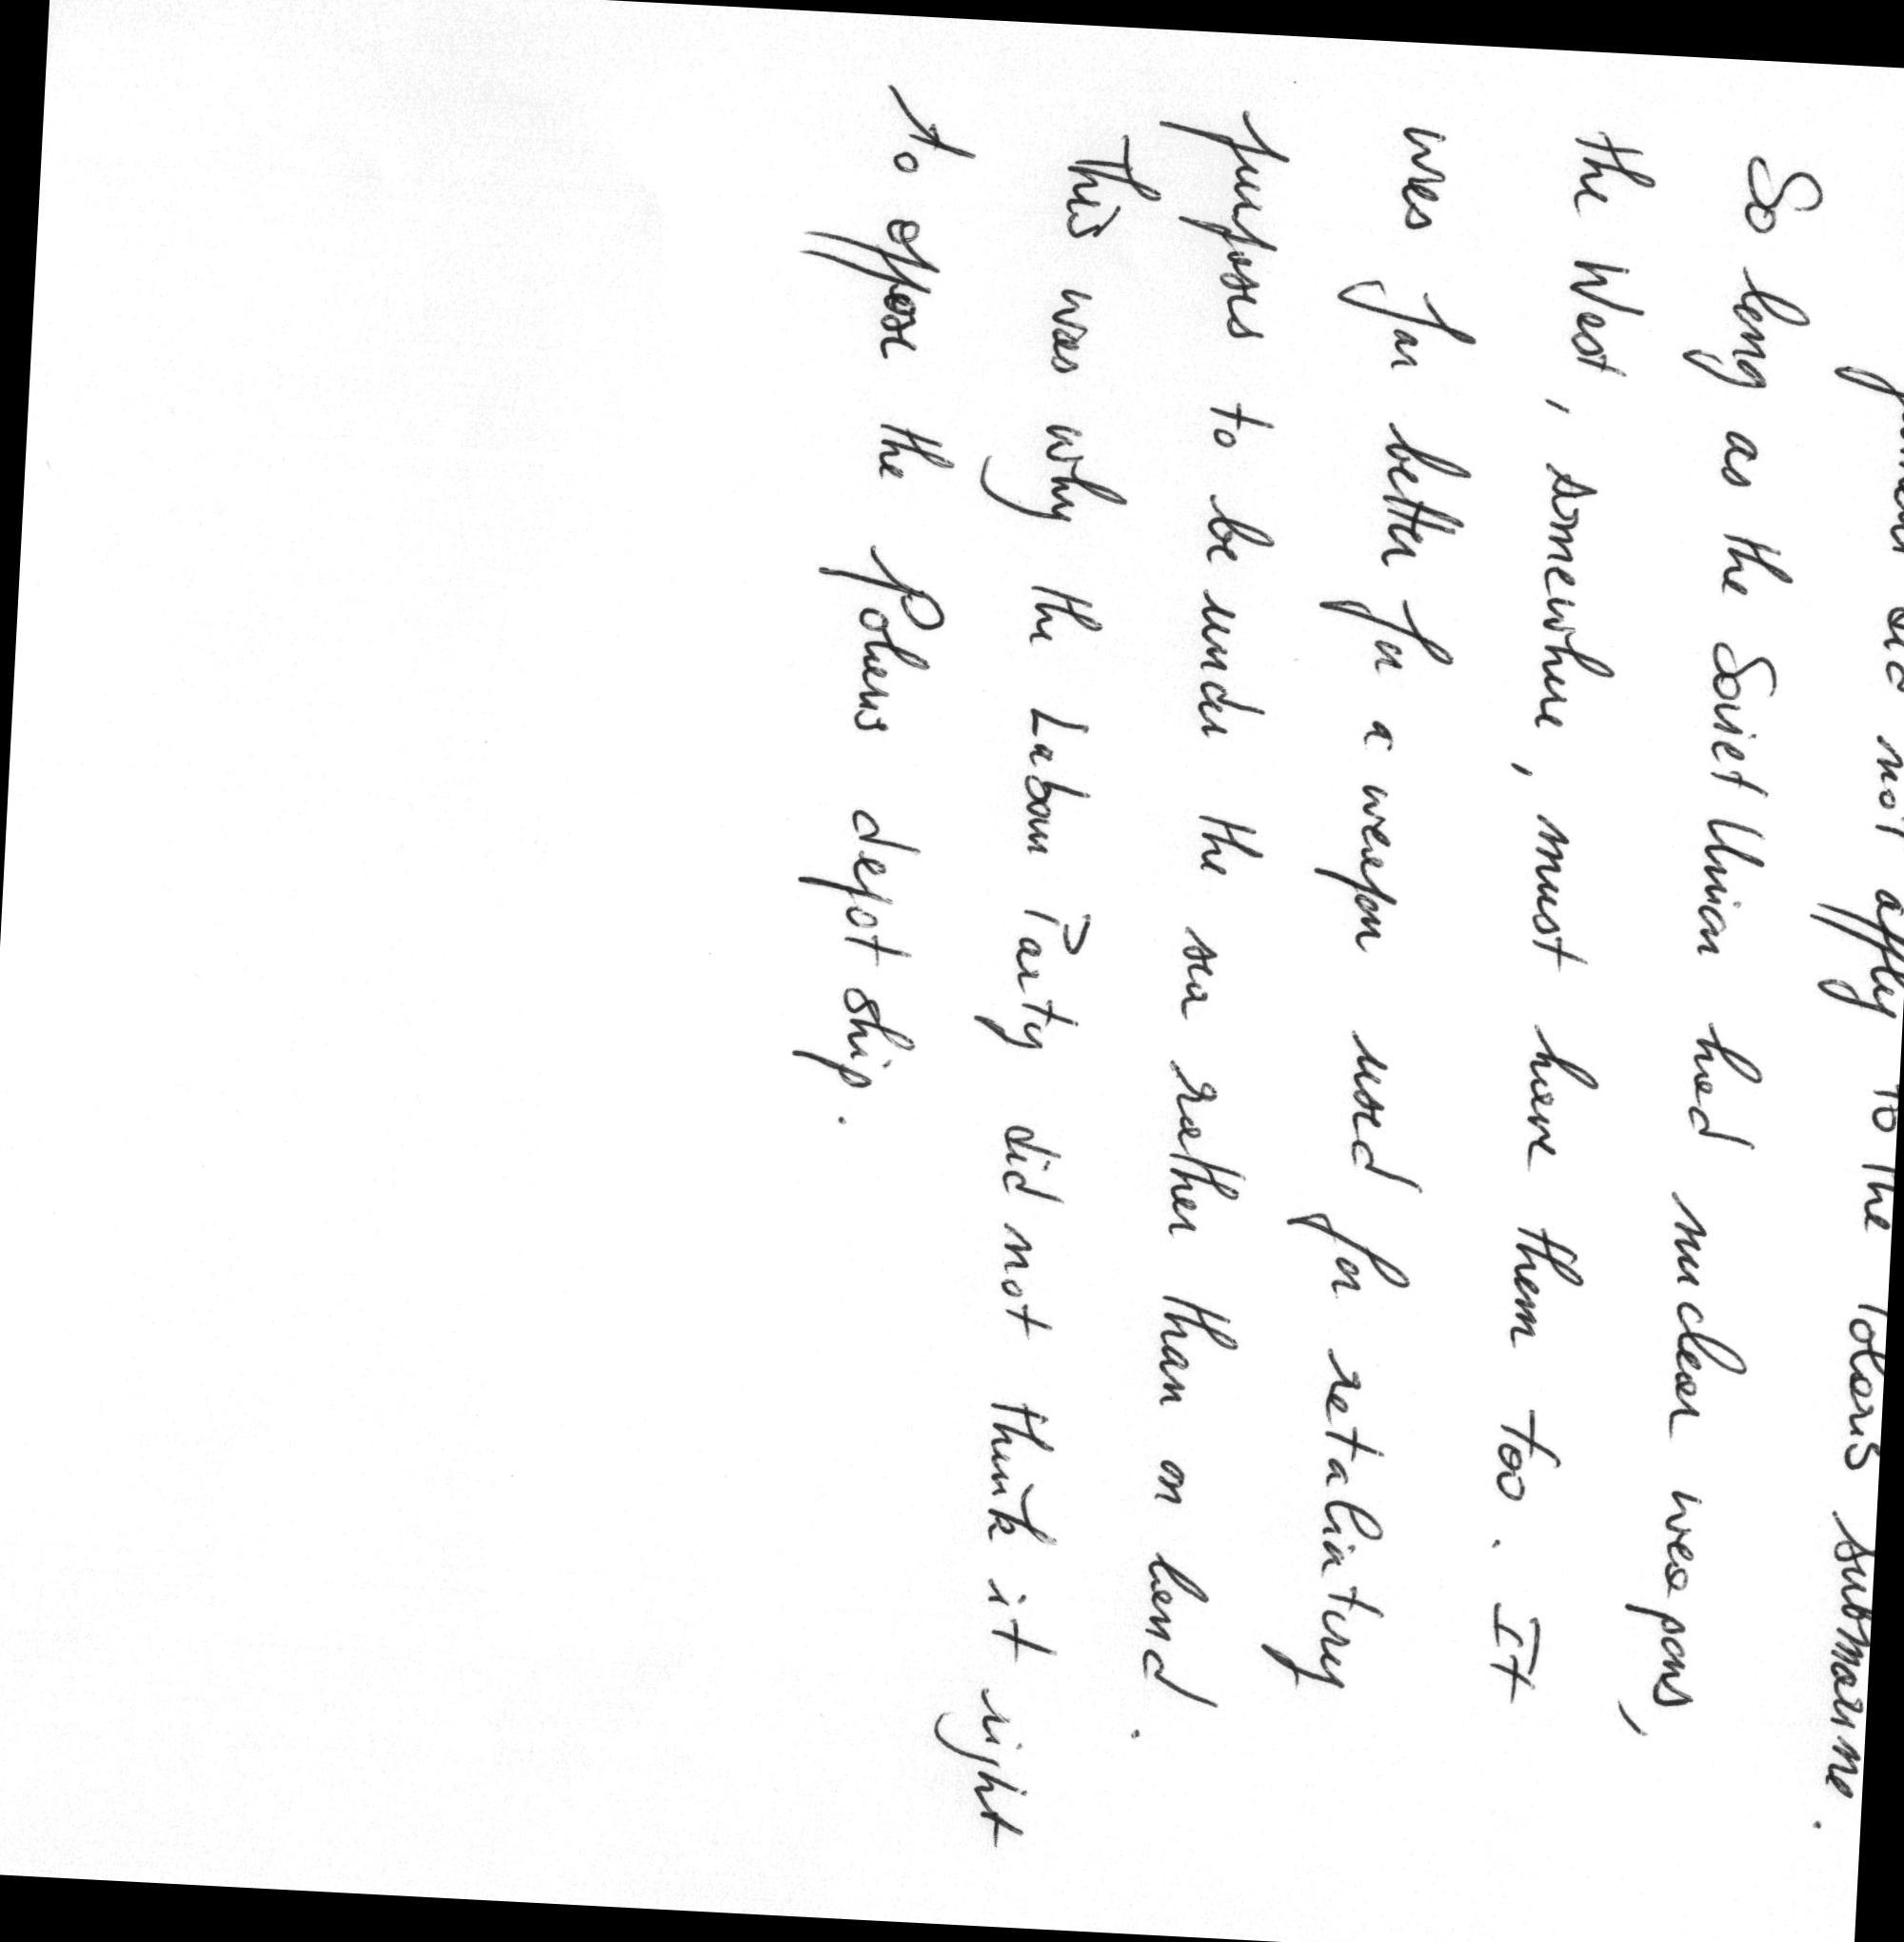 did not apply to the Polaris submarine.
So long as the Soviet Union had nuclear weapons,
the West, somewhere, must have them too. It
was far better for a weapon used for retaliatory
purposes to be under the sea rather than on land.
This was why the Labour Party did not think it right
to oppose the Polaris depot ship.